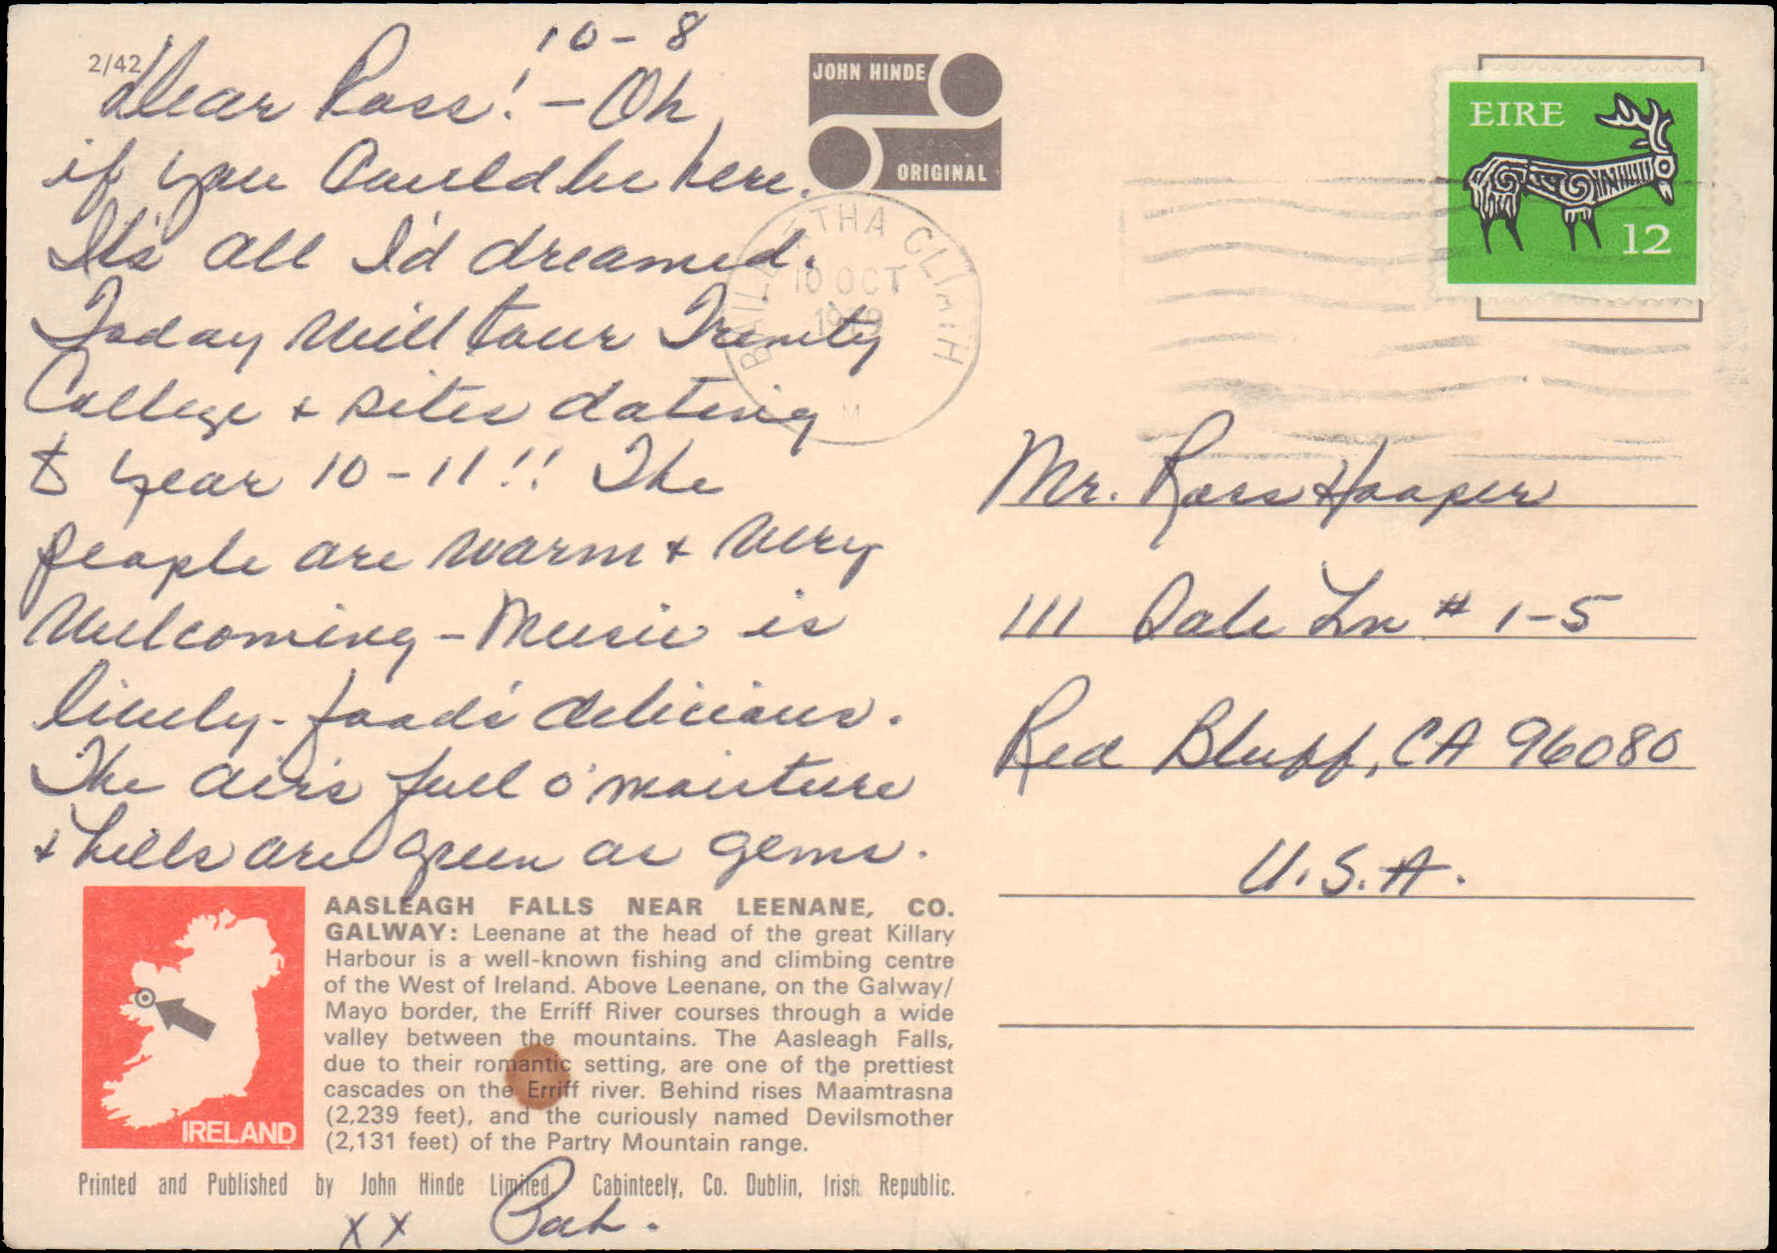 10-8
2/42
Dear Ross! - Oh
if you could be here.
It's all I'd dreamed.
Today will tour Trinity
College + sites dating
to year 10-11!! The
people are warm + very
welcoming - Music is
lively - food's delicious.
The air's full o' moisture
+ hills are green as gems.
JOHN HINDE
ORIGINAL
EIRE
12
BAILE ÁTHA CLIATH
10 OCT
1979
Mr. Ross Hooper
111 Dale Ln # 1-5
Red Bluff, CA 96080
U.S.A.
AASLEAGH FALLS NEAR LEENANE, CO.
GALWAY: Leenane at the head of the great Killary
Harbour is a well-known fishing and climbing centre
of the West of Ireland. Above Leenane, on the Galway/
Mayo border, the Erriff River courses through a wide
valley between the mountains. The Aasleagh Falls,
due to their romantic setting, are one of the prettiest
cascades on the Erriff river. Behind rises Maamtrasna
(2,239 feet), and the curiously named Devilsmother
(2,131 feet) of the Partry Mountain range.
IRELAND
Printed and Published by John Hinde Limited, Cabinteely, Co. Dublin, Irish Republic.
xx Pat.